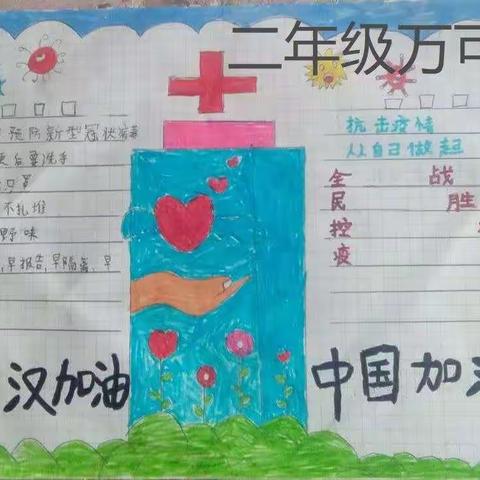 二年级万可
预防新型冠状病毒
后要洗手
口罩
不扎堆
野味
早报告,早隔离、早
汉加油
抗击疫情
从自己做起
全民控疫
战胜
中国加